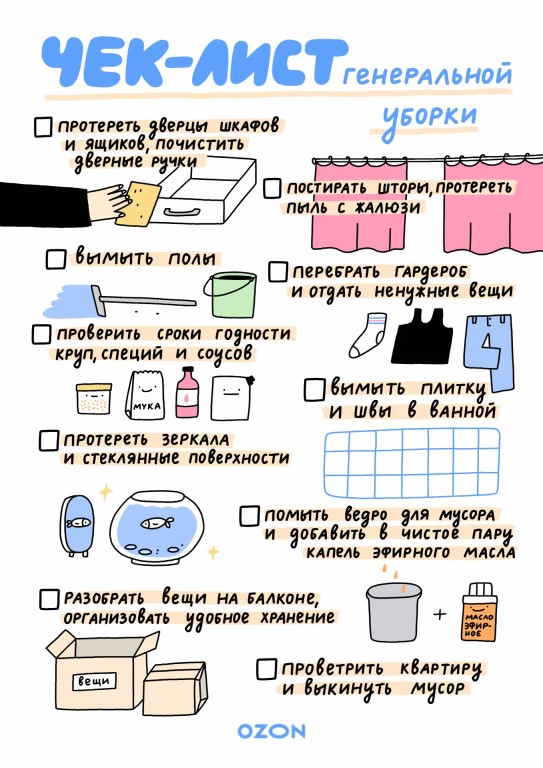 ЧЕК-ЛИСТ
ГЕНЕРАЛЬНОЙ
УБОРКИ
ПРОТЕРЕТЬ ДВЕРЦЫ ШКАФОВ
И ЯЩИКОВ, ПОЧИСТИТЬ
ДВЕРНЫЕ РУЧКИ
ПОСТИРАТЬ ШТОРЫ, ПРОТЕРЕТЬ
ПЫЛЬ С ЖАЛЮЗИ
ВЫМЫТЬ ПОЛЫ
ПЕРЕБРАТЬ ГАРДЕРОБ
И ОТДАТЬ НЕНУЖНЫЕ ВЕЩИ
ПРОВЕРИТЬ СРОКИ ГОДНОСТИ
КРУП, СПЕЦИЙ И СОУСОВ
МУКА
ВЫМЫТЬ ПЛИТКУ
И ШВЫ В ВАННОЙ
ПРОТЕРЕТЬ ЗЕРКАЛА
И СТЕКЛЯННЫЕ ПОВЕРХНОСТИ
ПОМЫТЬ ВЕДРО ДЛЯ МУСОРА
И ДОБАВИТЬ В ЧИСТОЕ ПАРУ
КАПЕЛЬ ЭФИРНОГО МАСЛА
+
МАСЛО
ЭФИР-
НОЕ
РАЗОБРАТЬ ВЕЩИ НА БАЛКОНЕ,
ОРГАНИЗОВАТЬ УДОБНОЕ ХРАНЕНИЕ
ВЕЩИ
ПРОВЕТРИТЬ КВАРТИРУ
И ВЫКИНУТЬ МУСОР
OZON